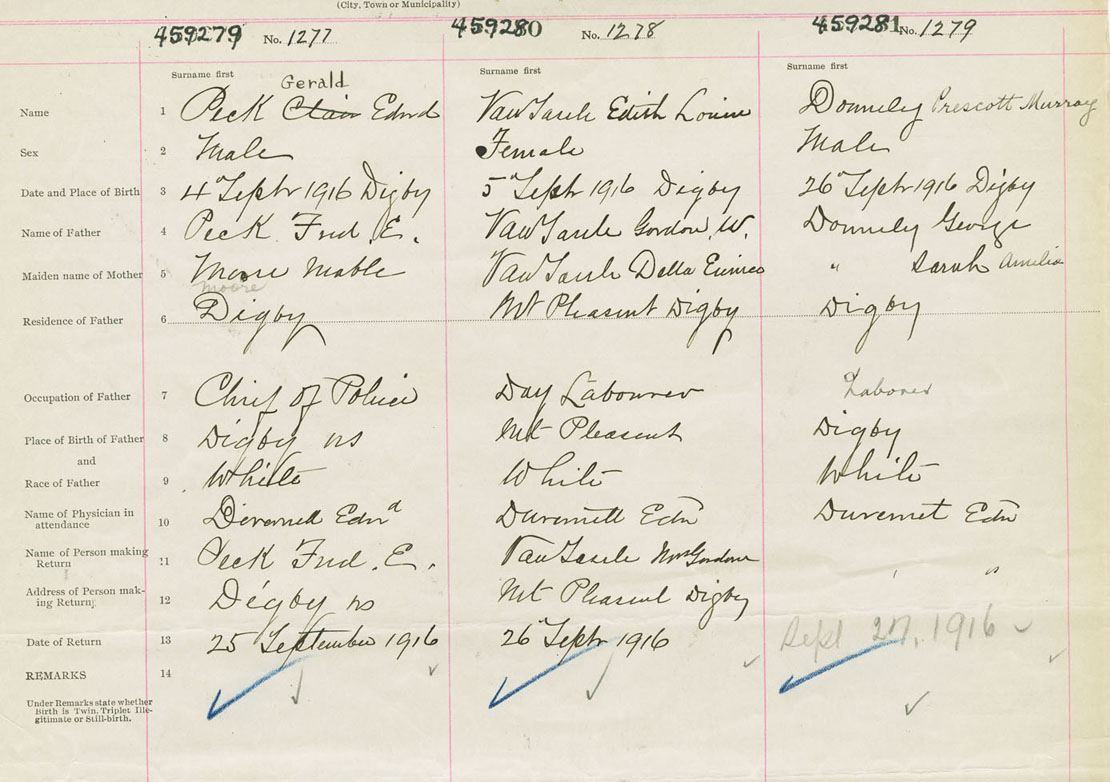 (City, Town or Municipality)
459279 No. 1277 459280 No. 1278 459281 No. 1279
Surname first Surname first Surname first
Gerald
Name 1 Peck Clair Edwd VanTassle Edith Louise Donnely Prescott Murray
Sex 2 Male Female Male
Date and Place of Birth 3 4" Septr 1916 Digby 5" Septr 1916 Digby 26" Septr 1916 Digby
Name of Father 4 Peck Fred. E. VanTassle Gordon W. Donnely George
Maiden name of Mother 5 Moore Mable VanTassle Della " Sarah Amelia
moore
Residence of Father 6 Digby Mt Pleasent Digby Digby
Occupation of Father 7 Chief of Police Day Labourer Laborer
Place of Birth of Father 8 Digby ns Mt Pleasent Digby
and
Race of Father 9 White White White
Name of Physician in
attendance 10 Edwd Edw Edw
Name of Person making
Return 11 Peck Fred. E. VanTassle Mrs Gordon " "
Address of Person mak-
ing Return; 12 Digby ns Mt Pleasent Digby
Date of Return 13 25 September 1916 26" Septr 1916 Sept 27, 1916
REMARKS 14
Under Remarks state whether
Birth is Twin. Triplet Ille-
gitimate or Still-birth.